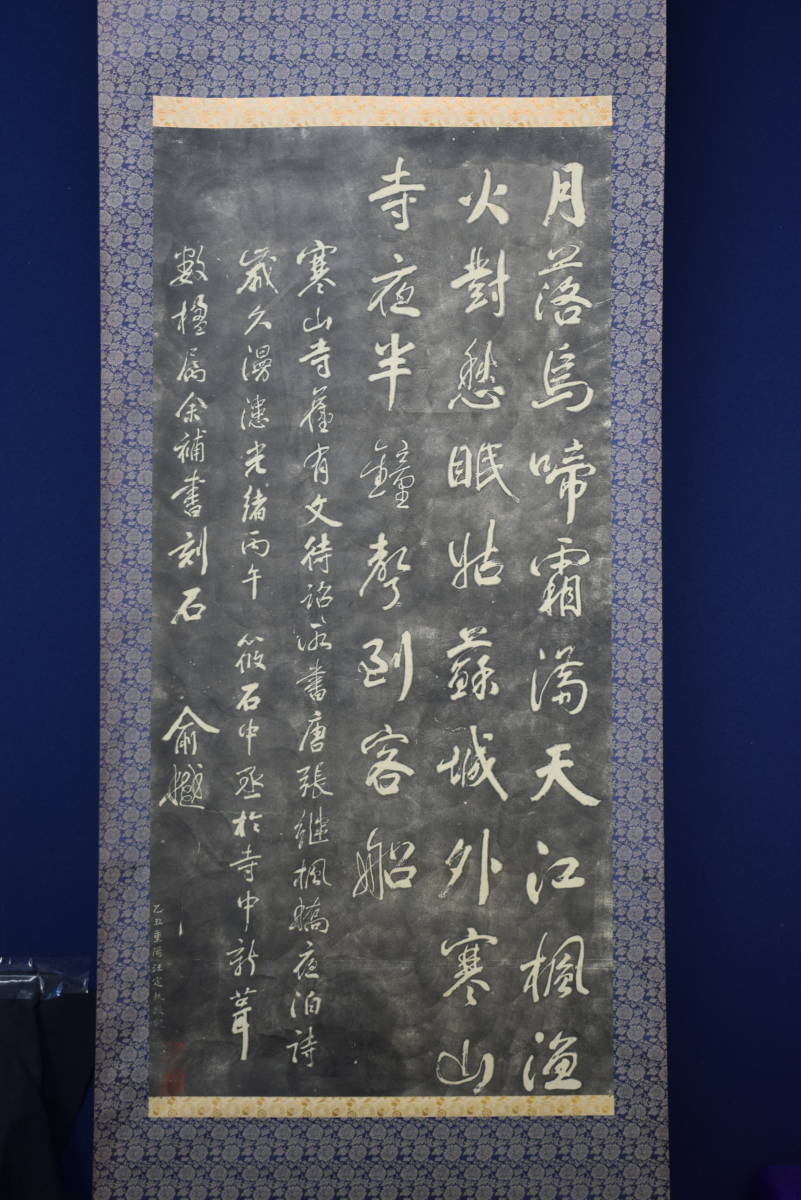 月落烏啼霜滿天江楓漁
火對愁眠姑蘇城外寒山
寺夜半鐘聲到客船
寒山寺舊有文待詔所書唐張繼楓橋夜泊詩
歲久漫漶光緒丙午 筱石中丞於寺中新葺
數楹屬余補書刻石 俞樾
乙丑重陽汪定執